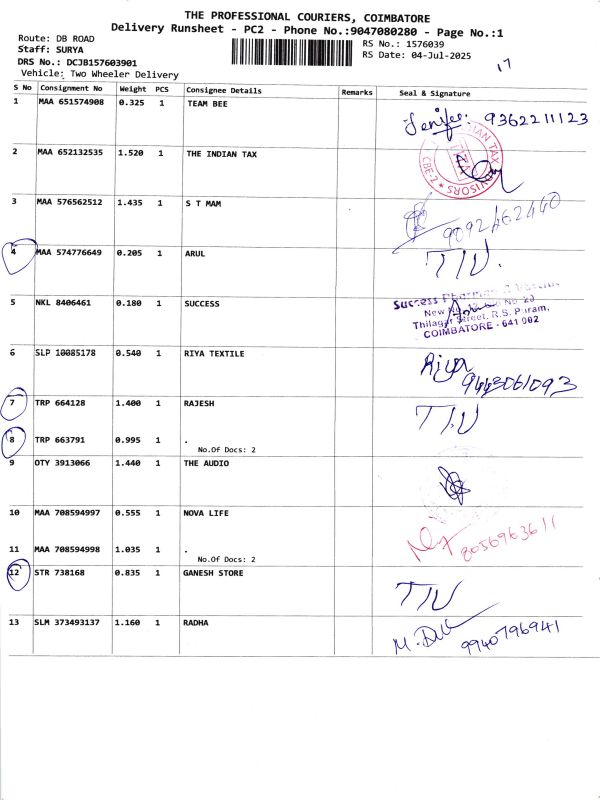 THE PROFESSIONAL COURIERS, COIMBATORE
Delivery Runsheet - PC2 - Phone No.:9047080280 - Page No.:1
Route: DB ROAD
RS No.: 1576039
Staff: SURYA
RS Date: 04-Jul-2025
17
DRS No.: DCJB157603901
Vehicle: Two Wheeler Delivery
S No Consignment No Weight PCS Consignee Details Remarks Seal & Signature
1 MAA 651574908 0.325 1 TEAM BEE
Jenifer: 9362211123
2 MAA 652132535 1.520 1 THE INDIAN TAX
INDIAN TAX ADVISORS * CBE-2 *
3 MAA 576562512 1.435 1 S T MAM
9092462460
4 MAA 574776649 0.205 1 ARUL
TIU.
5 NKL 8406461 0.180 1 SUCCESS
Success
New No 20
Thilagar Street, R.S. Puram,
COIMBATORE - 641 002
6 SLP 10085178 0.540 1 RIYA TEXTILE
Riya
9443061093
7 TRP 664128 1.400 1 RAJESH
TIU
8 TRP 663791 0.995 1 .
No.Of Docs: 2
9 OTY 3913066 1.440 1 THE AUDIO
10 MAA 708594997 0.555 1 NOVA LIFE
8056963611
11 MAA 708594998 1.035 1 .
No.Of Docs: 2
12 STR 738168 0.835 1 GANESH STORE
TIU
13 SLM 373493137 1.160 1 RADHA
9940796941